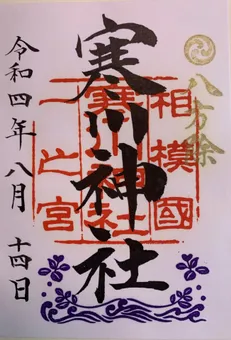 八方除
相模國
寒川神社
寒川神社
一之宮
令和四年八月十四日